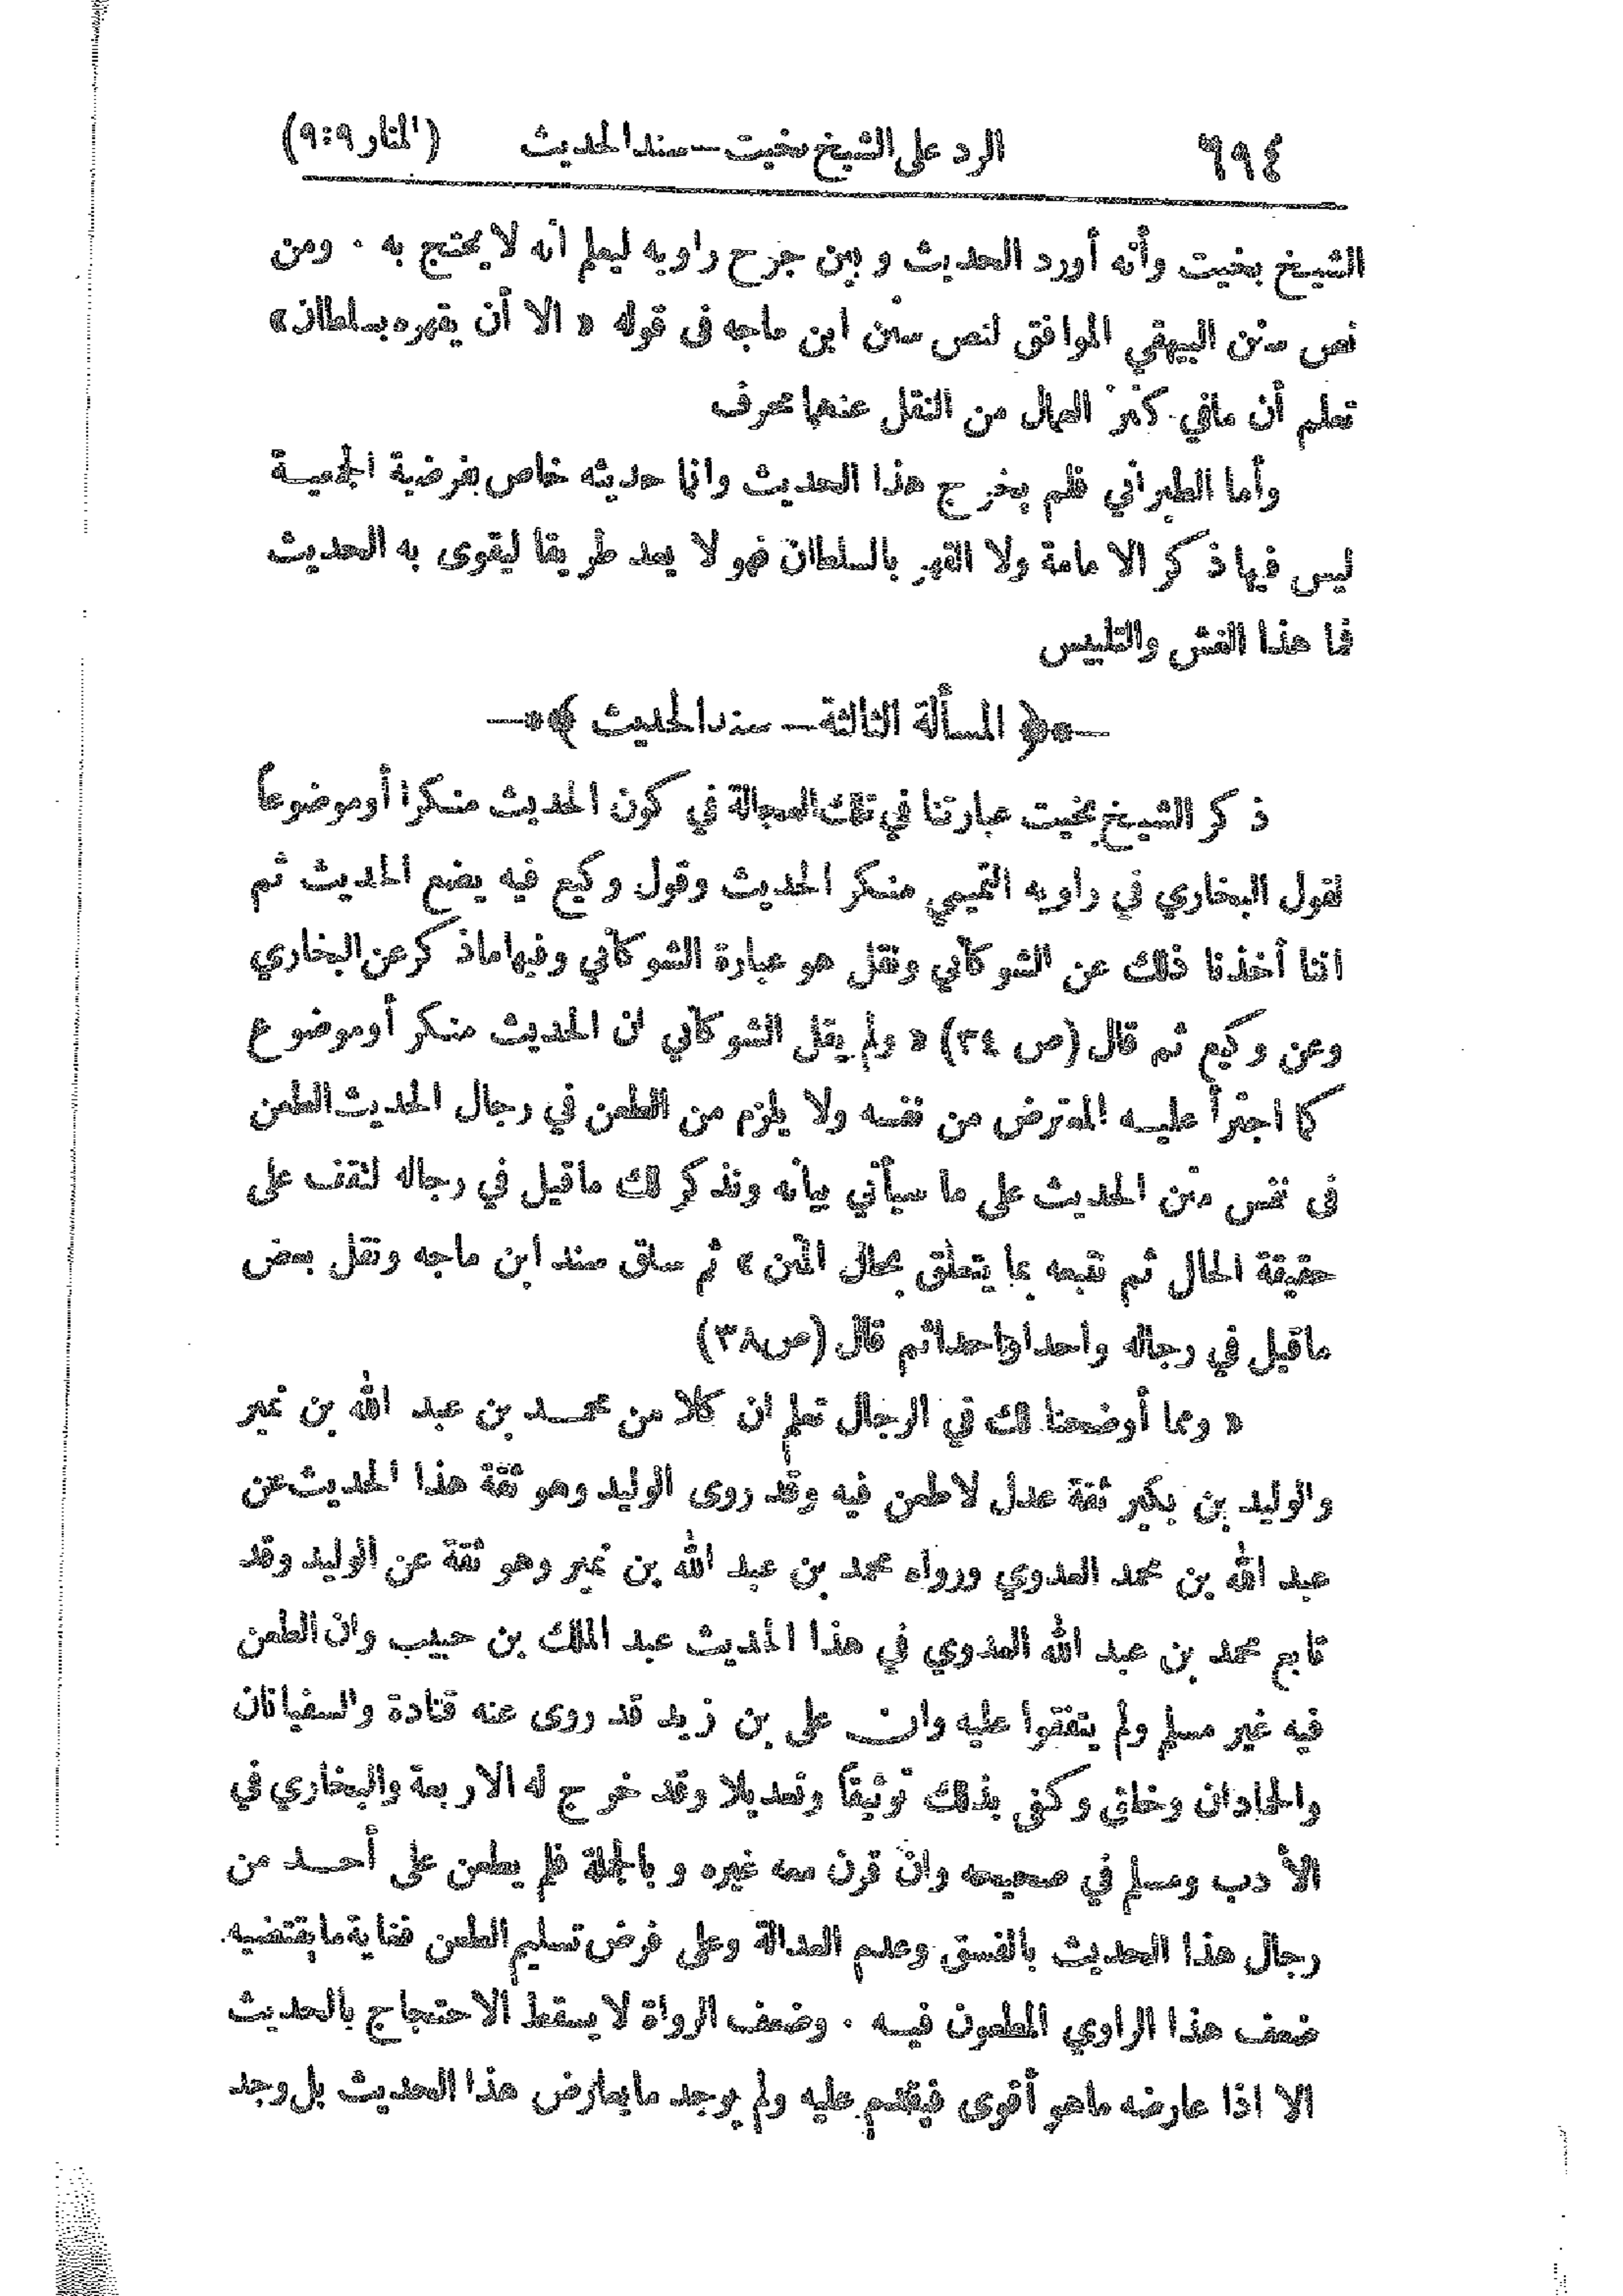 ٦٩٤ الرد على الشيخ بخيت – سند الحديث (المنار ٩:٩)
الشيخ بخيت وأنه أورد الحديث وبين جرح راويه ليعلم انه لا يحتج به . ومن
نص سنن البيهقي الموافق لنص سنن ابن ماجه في قوله « الا أن يقهره بسلطان »
تعلم أن مافي كنز العمال من النقل عنهما محرف
وأما الطبراني فلم يخرج هذا الحديث وانما حديثه خاص بفرضية الجمعية
ليس فيها ذكر الامامة ولا القهر بالسلطان فهو لا يعد طريقا ليقوى به الحديث
فما هذا الغش والتلبيس
﴿ المسألة الثالثة – سند الحديث ﴾
ذكر الشيخ بخيت عبارتنا في تلك العجالة في كون الحديث منكرا أو موضوعاً
لقول البخاري في راويه التميمي منكر الحديث وقول وكيع فيه يضع الحديث ثم
اننا أخذنا ذلك عن الشوكاني ونقل هو عبارة الشوكاني وفيها ماذكر عن البخاري
وعن وكيع ثم قال (ص ٣٤) « ولم يقل الشوكاني ان الحديث منكر أو موضوع
كما اجترأ عليه المعترض من نفسه ولا يلزم من الطعن في رجال الحديث الطعن
في نفس متن الحديث على ما سيأتي بيانه ونذكر لك ماقيل في رجاله لتقف على
حقيقة الحال ثم نتبعه بما يتعلق بحال المتن » ثم ساق سند ابن ماجه ونقل بعض
ماقيل في رجاله واحدا واحدا ثم قال (ص٣٨)
« ومما أوضحنا لك في الرجال تعلم ان كلا من محمد بن عبد الله بن نمير
والوليد بن بكير ثقة عدل لاطعن فيه وقد روى الوليد وهو ثقة هذا الحديث عن
عبد الله بن محمد العدوي ورواه محمد بن عبد الله بن نمير وهو ثقة عن الوليد وقد
تابع محمد بن عبد الله العدوي في هذا الحديث عبد الملك بن حبيب وان الطعن
فيه غير مسلم ولم يتفقوا عليه وان على بن زيد قد روى عنه قتادة والسفيانان
والحمادان وخلق وكفى بذلك توثيقاً وتعديلا وقد خرج له الاربعة والبخاري في
الأدب ومسلم في صحيحه وان قرن معه غيره وبالجملة فلم يطعن على أحد من
رجال هذا الحديث بالفسق وعدم العدالة وعلى فرض تسليم الطعن فغاية مايقتضيه
ضعف هذا الراوي المطعون فيه . وضعف الرواة لا يسقط الاحتجاج بالحديث
الا اذا عارضه ماهو أقوى فيقدم عليه ولم يوجد مايعارض هذا الحديث بل وجد